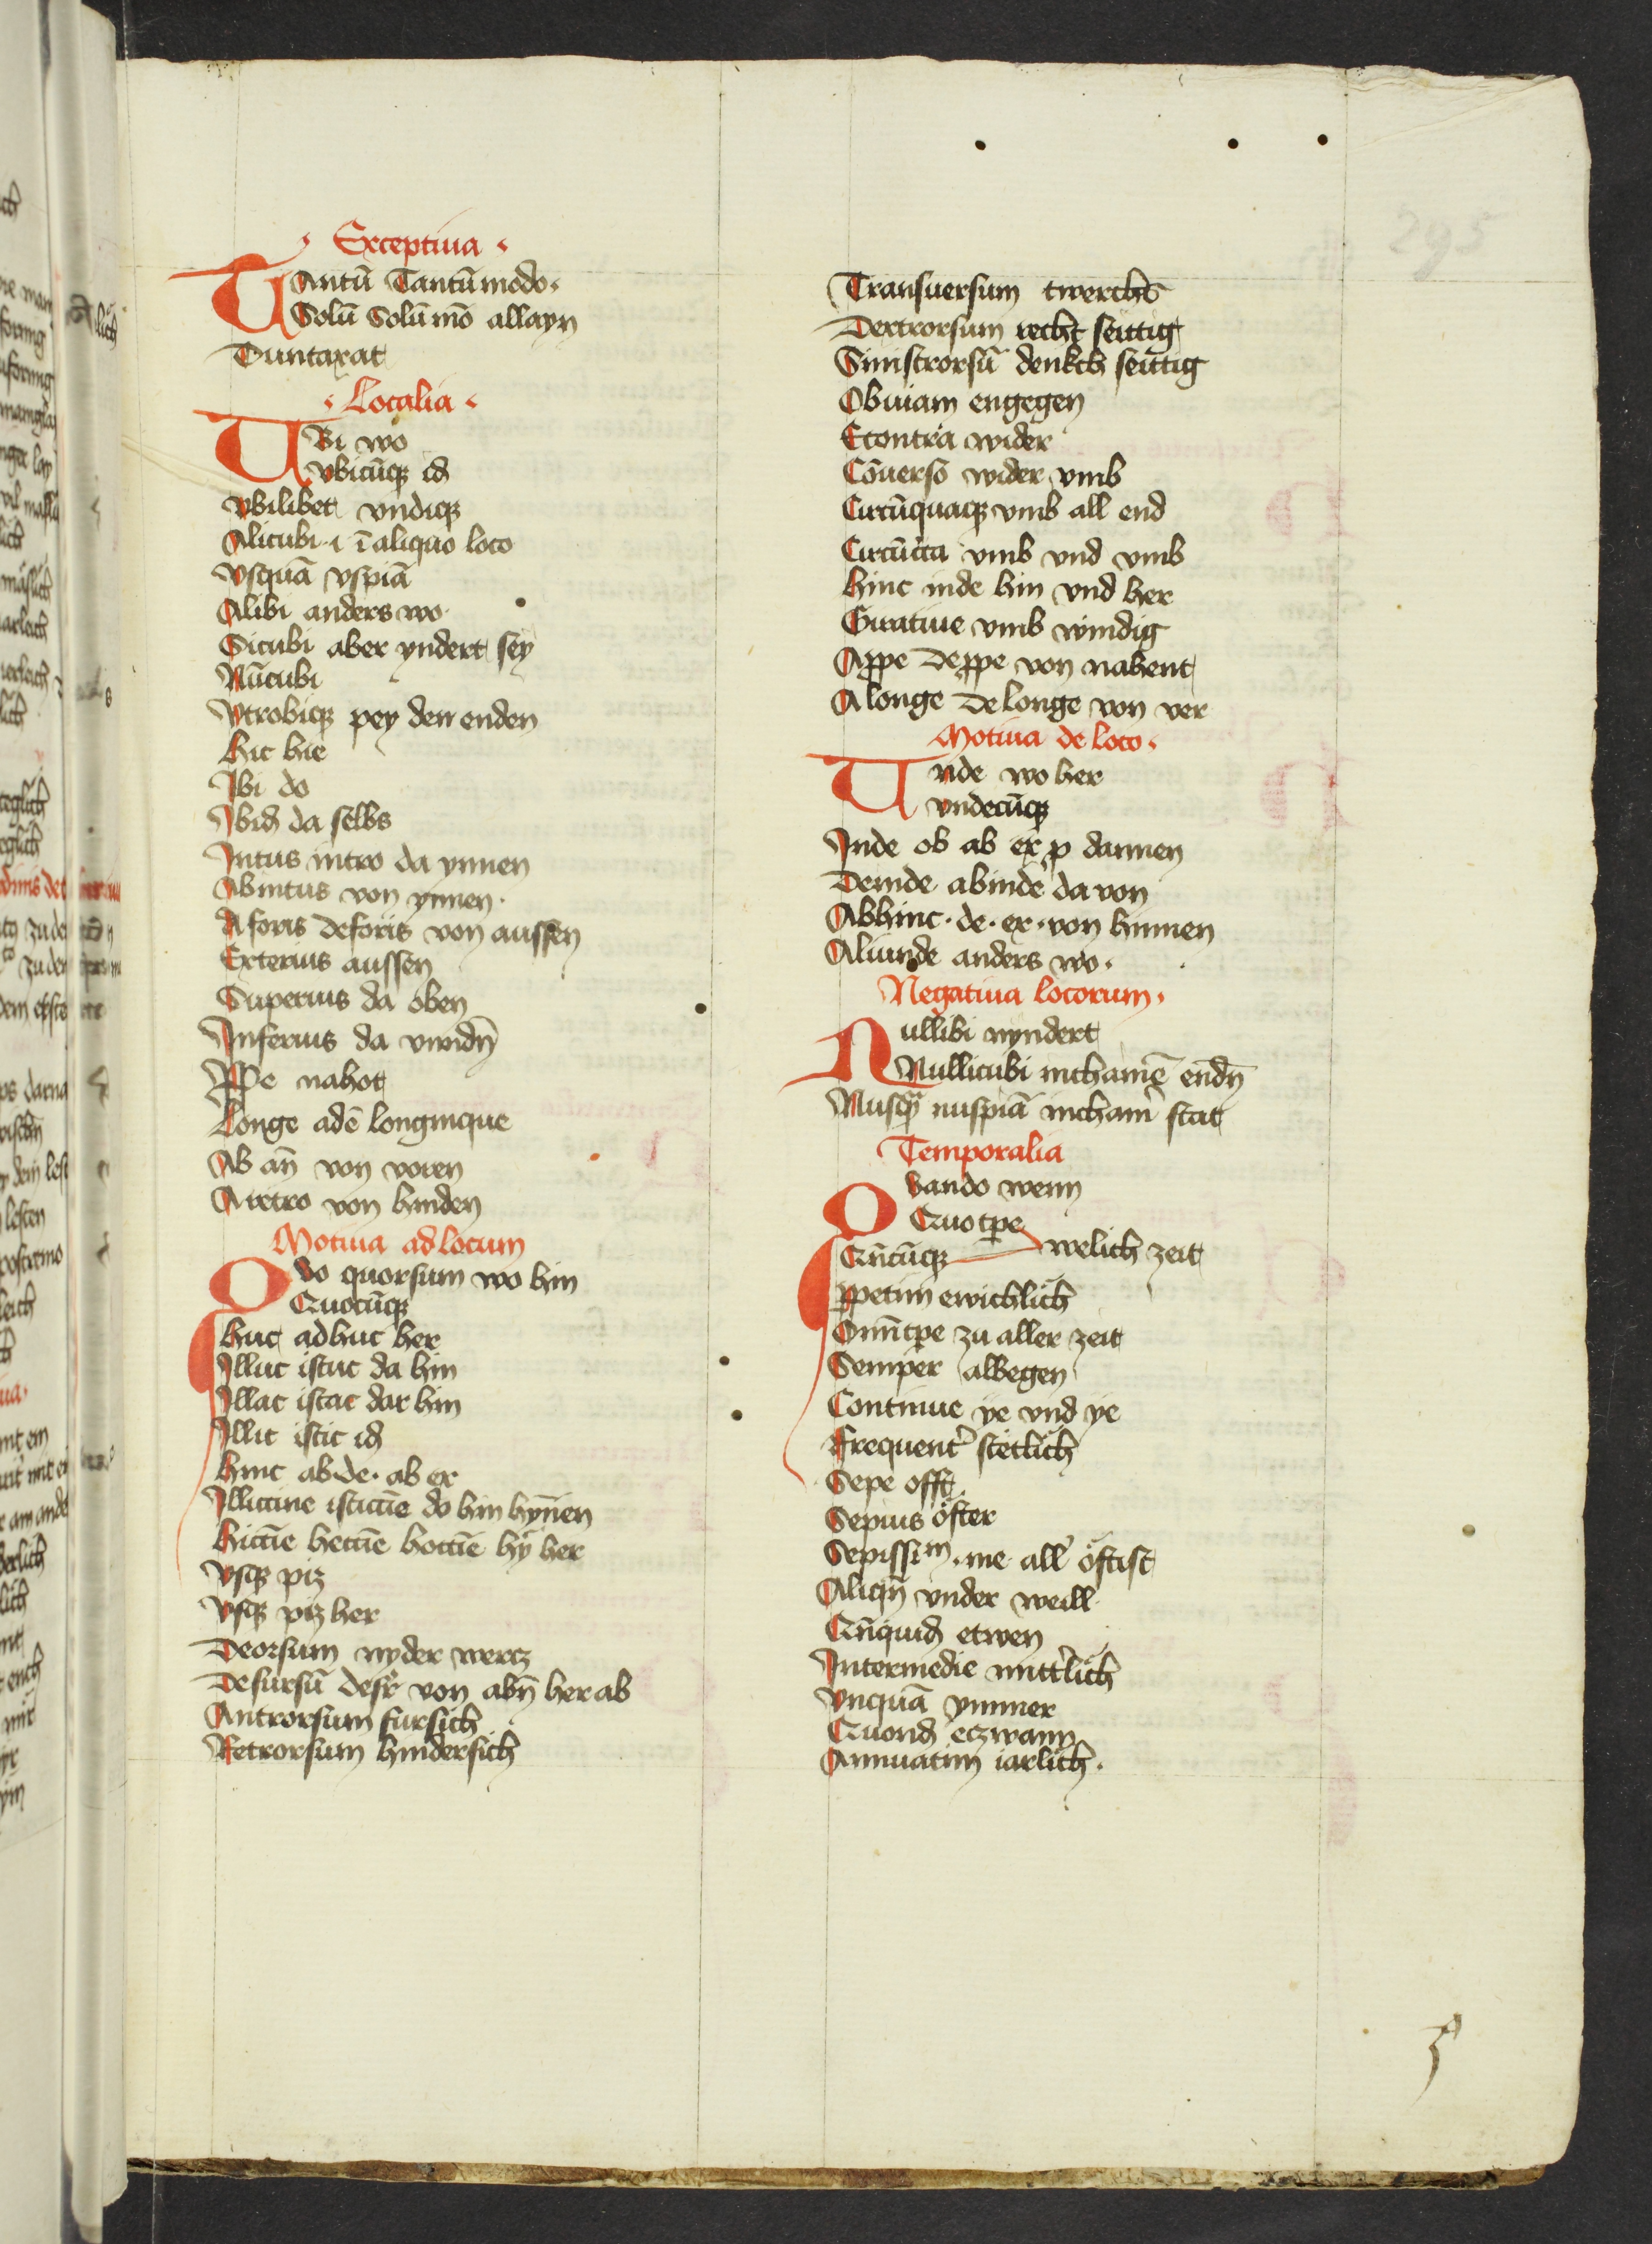 Exceptiua
TAntū Tantūmodo
Solū Solūmō allayn
Duntaxat
Localia
VBi wo
vbicūqꝫ id
Vbilibet vndiqꝫ
Alicubi ·i· ī aliquo loco
Vsquā vspiā
Alibi anders wo
Sicubi aber yndert sey
Nūcubi
Vtrobiqꝫ pey den enden
hic hie
Ibi do
Ibid̄ da selbs
Intus intro da ynnen
Abintus von ynnen
A foris deforis von aussen
Exterius aussen
Superius da oben
Inferius da vnndn̄
Ꝓpe nahet
Longe adē longinque
Ab an̄ von voren
A retro von hinden
Motiua ad locum
QVo quorsum wo hin
Quocūqꝫ
huc adhuc her
Illuc istuc da hin
Illac istac dar hin
Illic istic id
hinc ab·de·ab ex
Illiccine isticcīe do hin hyn̄en
hiccīe heccīe hoccīe hy her
Vsqꝫ piz
Vsqꝫ piz her
Deorsum nyder wertz
Desursū desꝛ von abn̄ her ab
Antrorsum fursich
Retrorsum hindersich
295
Transuersum twerchs
Dextrorsum recht seittig
Sinistrorsū denkch seittig
Obuiam engegen
Econtra wider
Cōuerso wider vmb
Circūquaqꝫ vmb all end
Circūcca vmb vnd vmb
hinc inde hin vnd her
Giratiue vmb windig
Aꝓpe deꝓpe von nahent
A longe de longe von ver
Motiua de loco
Vnde wo her
vndecūqꝫ
Inde ob ab ex ꝑ dannen
Deinde abinde da von
Abhinc · de · ex · von hinnen
Aliunde anders wo
Negatiua locorum
Nullibi nyndert
Nullicubi nichainē endn̄
Nusqꝫ̄ nuspiā nichain̄ stat
Temporalia
Quando wenn
Quo tꝑe
Qn̄cūqꝫ welich zeit
ꝑpetim ewichlich
Omī tꝑe zu aller zeit
Semper albegen
Continue ye vnd ye
Frequentˀ stetlich
Sepe offt
Sepius öfter
Sepissim · me allˀ öftist
Aliqn̄ vnder weill
Qn̄quid̄ etwen
Intermedie mittˀlich
Vnquā ymmer
Quond̄ etzwann
Annuatim iarlich